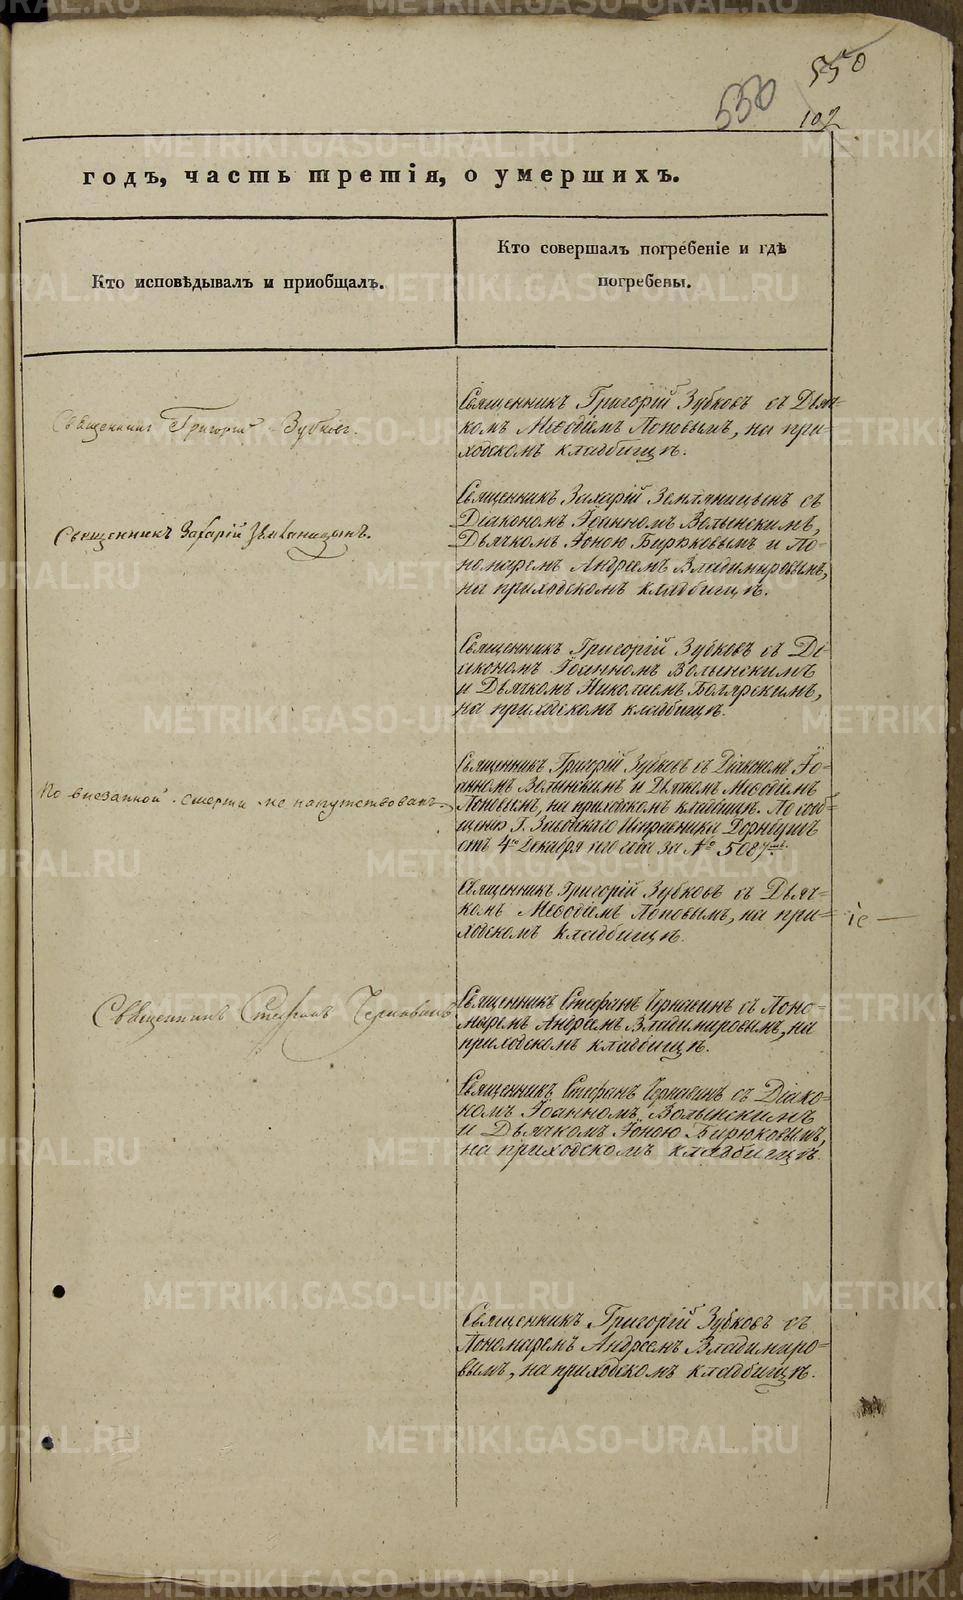 550
550
102
годъ, часть третія, о умершихъ.
Кто исповѣдывалъ и приобщалъ.
Кто совершалъ погребеніе и гдѣ
погребены.
Священникъ Григорій Зубковъ.
Священникъ Григорій Зубковъ съ Дьяч-
комъ Меѳодіемъ Поповымъ, на при-
ходскомъ кладбищѣ.
Священникъ Захарій Земляницынъ.
Священникъ Захарій Земляницынъ съ
Діакономъ Іоанномъ Волынскимъ,
Дьячкомъ Іоною Бирюковымъ и По-
номаремъ Андреемъ Владимировымъ,
на приходскомъ кладбищѣ.
Священникъ Григорій Зубковъ съ Ді-
акономъ Іоанномъ Волынскимъ
и Дьячкомъ Николаемъ Боярскимъ,
на приходскомъ кладбищѣ.
По внезапной смерти не напутствованъ.
Священникъ Григорій Зубковъ съ Діакономъ Іо-
анномъ Волынскимъ и Дьячкомъ Меѳодіемъ
Поповымъ, на приходскомъ кладбищѣ. По сооб-
щенію Г. Заводскаго Исправника
отъ 4го Декабря сего года за № 5087мъ.
Священникъ Григорій Зубковъ съ Дьяч-
комъ Меѳодіемъ Поповымъ, на при-
ходскомъ кладбищѣ.
іе —
Священникъ Стефанъ Чернавинъ
Священникъ Стефанъ Чернавинъ съ Поно-
маремъ Андреемъ Владимировымъ, на
приходскомъ кладбищѣ.
Священникъ Стефанъ Чернавинъ съ Діако-
номъ Іоанномъ Волынскимъ
и Дьячкомъ Іоною Бирюковымъ,
на приходскомъ кладбищѣ.
Священникъ Григорій Зубковъ съ
Пономаремъ Андреемъ Владимиро-
вымъ, на приходскомъ кладбищѣ.
METRIKI.GASO-URAL.RU